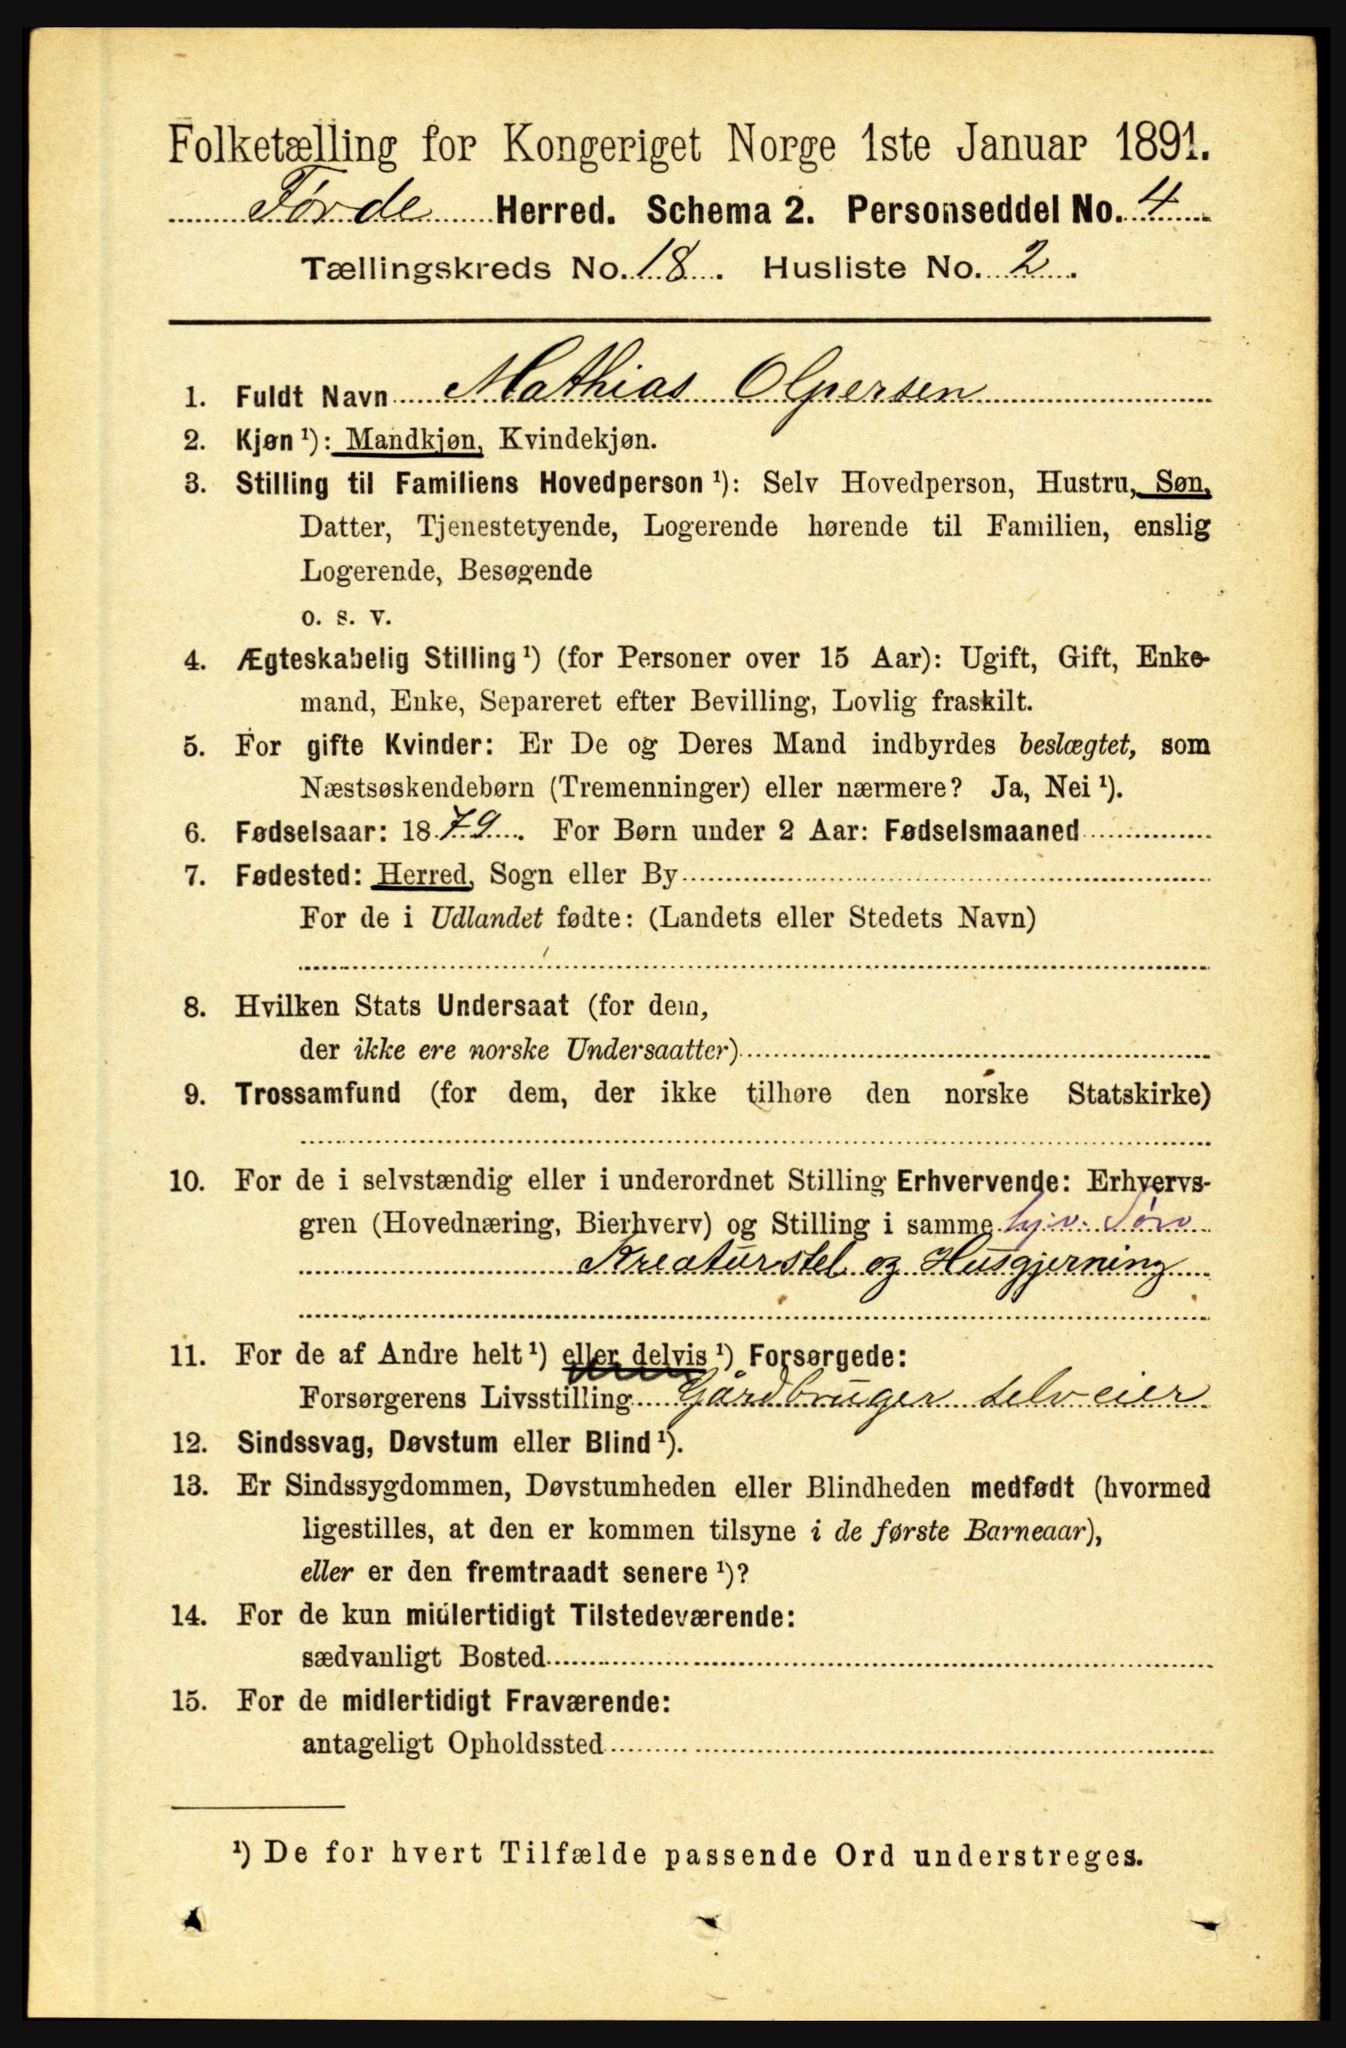 Folketælling for Kongeriget Norge 1ste Januar 1891.
Førde Herred. Schema 2. Personseddel No. 4
Tællingskreds No. 18. Husliste No. 2.
1. Fuldt Navn Mathias Olpersen
2. Kjøn ¹): Mandkjøn, Kvindekjøn.
3. Stilling til Familiens Hovedperson ¹): Selv Hovedperson, Hustru, Søn,
Datter, Tjenestetyende, Logerende hørende til Familien, enslig
Logerende, Besøgende
o. s. v.
4. Ægteskabelig Stilling ¹) (for Personer over 15 Aar): Ugift, Gift, Enke-
mand, Enke, Separeret efter Bevilling, Lovlig fraskilt.
5. For gifte Kvinder: Er De og Deres Mand indbyrdes beslægtet, som
Næstsøskendebørn (Tremenninger) eller nærmere? Ja, Nei ¹).
6. Fødselsaar: 1879. For Børn under 2 Aar: Fødselsmaaned
7. Fødested: Herred, Sogn eller By
For de i Udlandet fødte: (Landets eller Stedets Navn)
8. Hvilken Stats Undersaat (for dem,
der ikke ere norske Undersaatter)
9. Trossamfund (for dem, der ikke tilhøre den norske Statskirke)
10. For de i selvstændig eller i underordnet Stilling Erhvervende: Erhvervs-
gren (Hovednæring, Bierhverv) og Stilling i samme hj.v.
Kreaturstel og Husgjerning
11. For de af Andre helt ¹) eller delvis ¹) Forsørgede:
Forsørgerens Livsstilling Gårdbruger selveier
12. Sindssvag, Døvstum eller Blind ¹).
13. Er Sindssygdommen, Døvstumheden eller Blindheden medfødt (hvormed
ligestilles, at den er kommen tilsyne i de første Barneaar),
eller er den fremtraadt senere ¹)?
14. For de kun midlertidigt Tilstedeværende:
sædvanligt Bosted
15. For de midlertidigt Fraværende:
antageligt Opholdssted
¹) De for hvert Tilfælde passende Ord understreges.